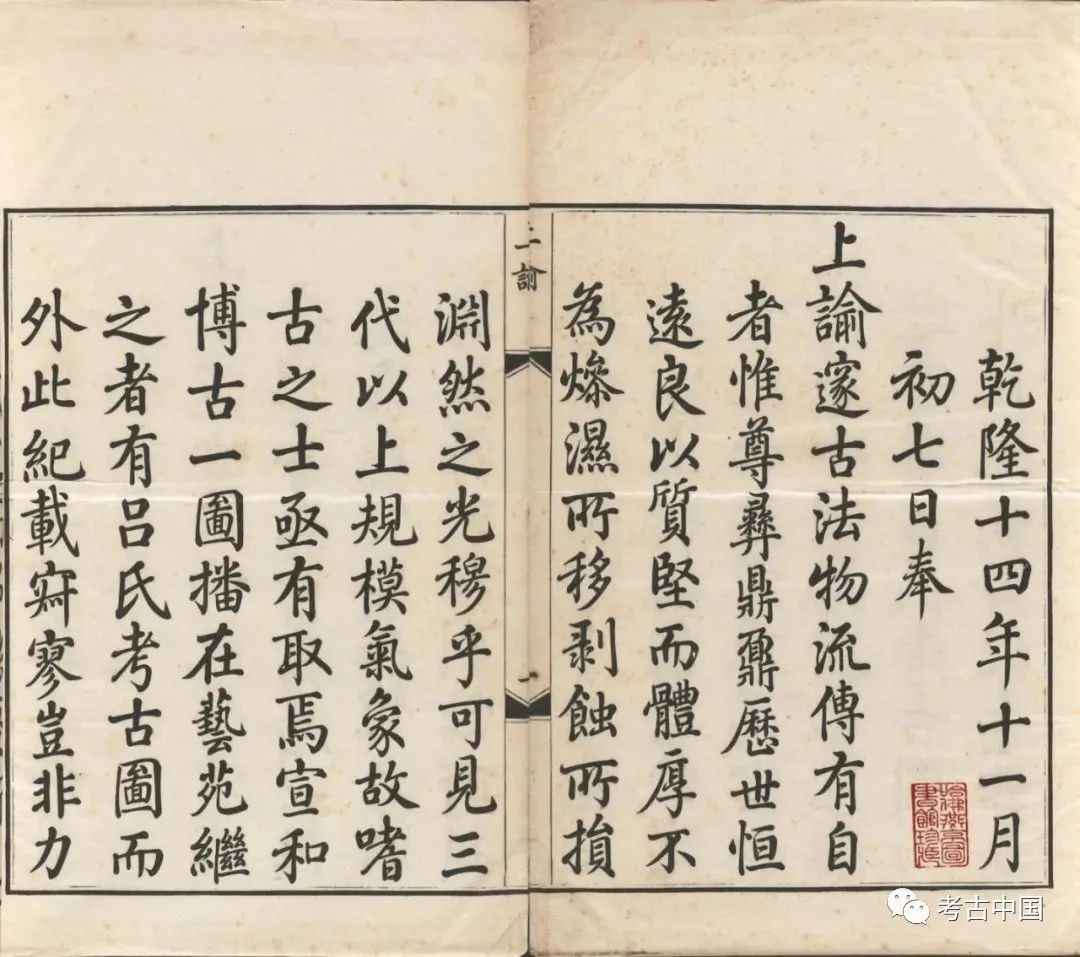 乾隆十四年十一月
初七日奉
上諭邃古法物流傳有自
者惟尊彝鼎鼐歷世恒
遠良以質堅而體厚不
為燥濕所移剥蝕所損
上諭
一
淵然之光穆乎可見三
代以上規模氣象故嗜
古之士亟有取焉宣和
博古一圖播在藝苑繼
之者有呂氏考古圖而
外此紀載寂寥豈非力
哈佛燕京圖
書館珍藏
考古中国